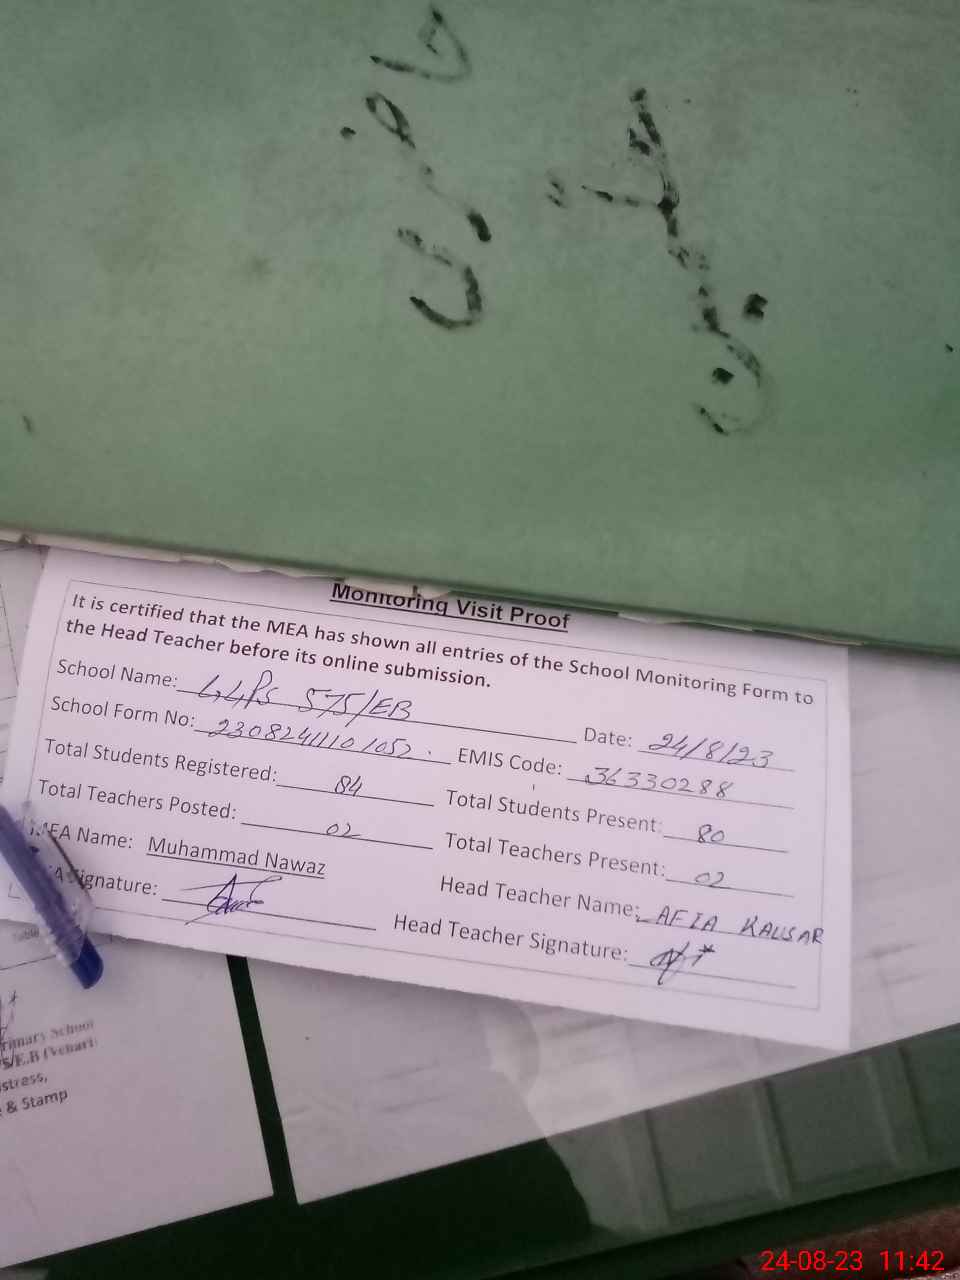 Monitoring Visit Proof
It is certified that the MEA has shown all entries of the School Monitoring Form to
the Head Teacher before its online submission.
School Name: GGPS 575/EB Date: 24/8/23
School Form No: 23082411101052. EMIS Code: 36330288
Total Students Registered: 84 Total Students Present: 80
Total Teachers Posted: 02 Total Teachers Present: 02
MEA Name: Muhammad Nawaz Head Teacher Name: AFIA KAUSAR
Signature: Head Teacher Signature:
Table
rimary School
/E.B (Vehari)
stress,
& Stamp
24-08-23 11:42